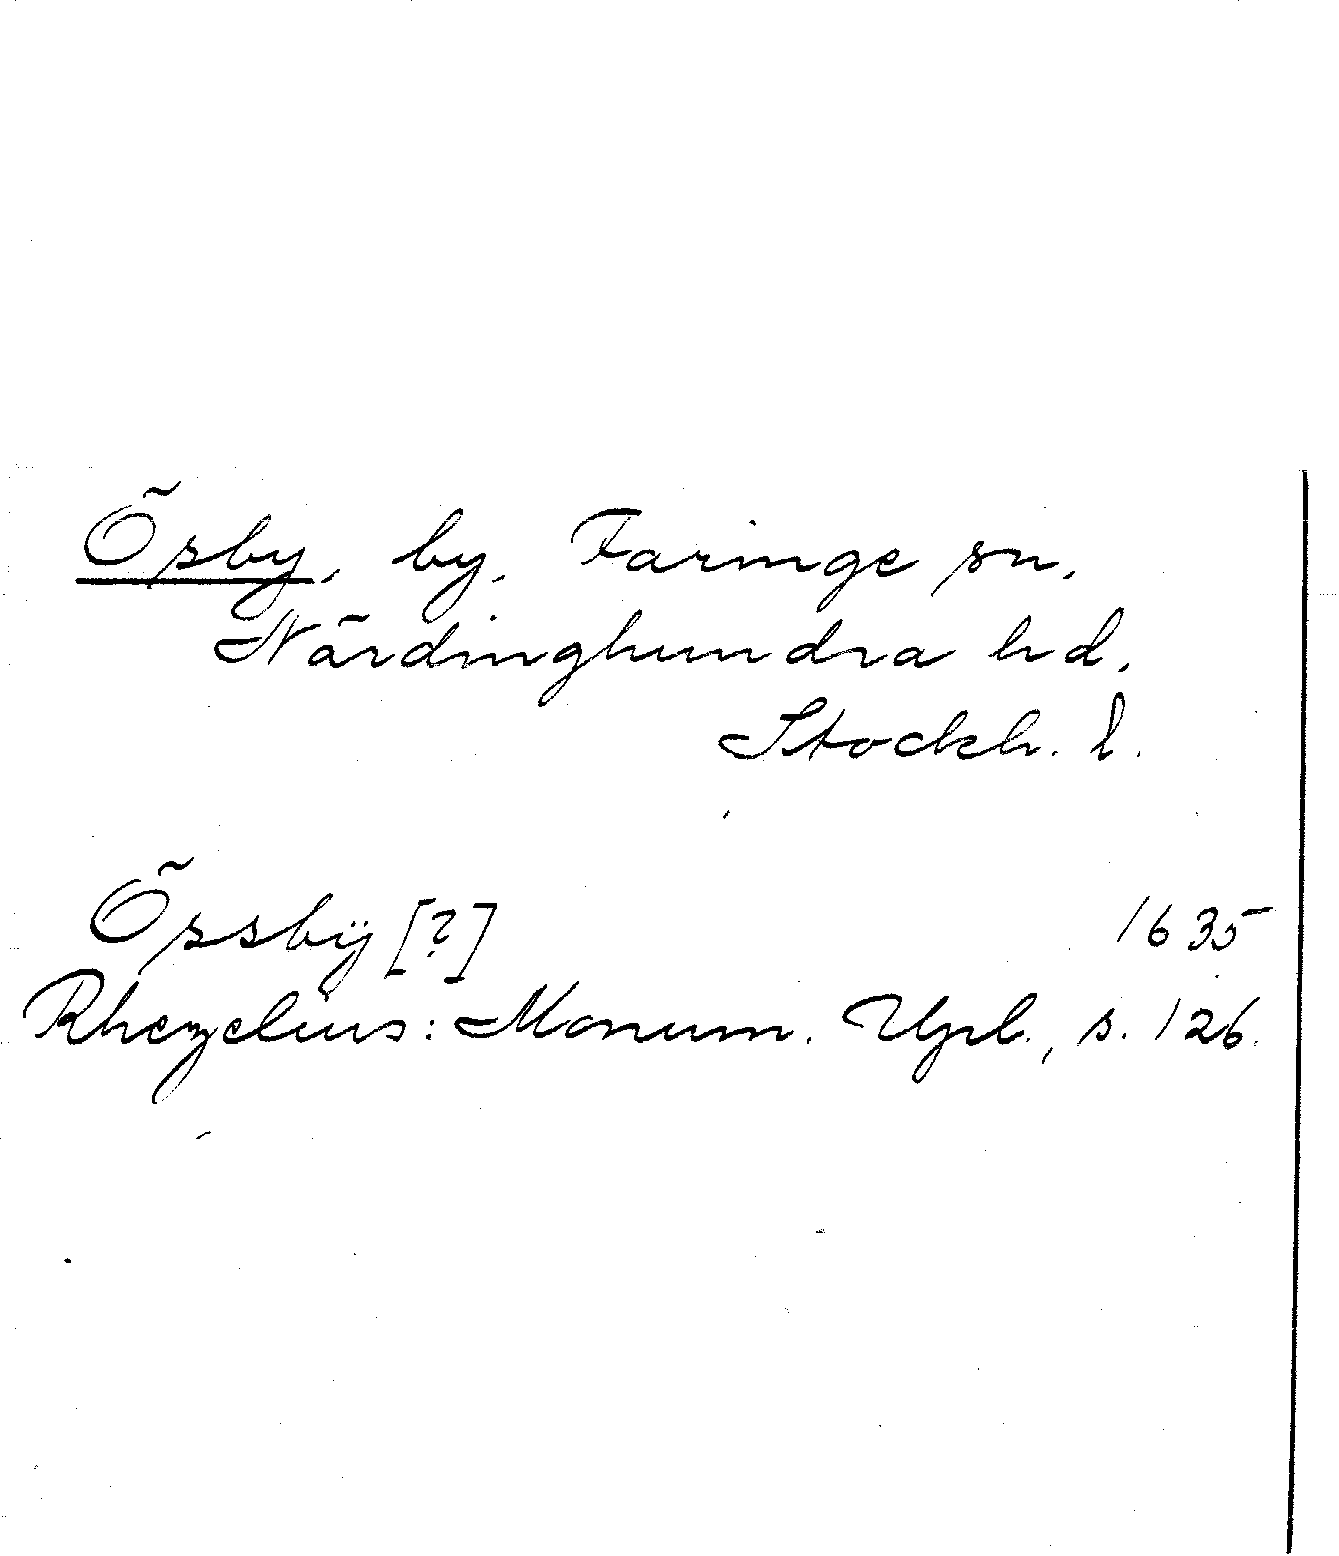 Ösby, by, Faringe sn,
Närdinghundra hd,
Stockh. l.
Össbÿ [?] 1635
Rhezelius: Monum. Upl., s. 126.